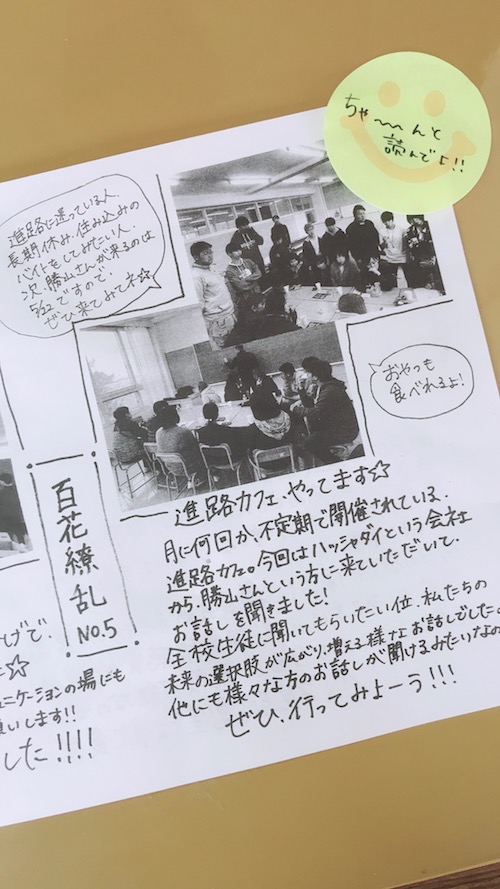 ちゃ〜〜んと
読んでよ!!
進路に迷っている人、
長期休み、住み込みの
バイトをしてみたい人、
次、勝山さんが来るのは
5/22ですので、
ぜひ来てみてネ☆
おやつも
食べれるよ!
百花繚乱
NO.5
進路カフェ、やってます☆
月に何回か、不定期で開催されている、
進路カフェ。今回はハッシャダイという会社
から、勝山さんという方に来ていただいて、
お話しを聞きました!
全校生徒に聞いてもらいたい位、私たちの
未来の選択肢が広がり、増える様なお話しでした
他にも様々な方のお話しが聞けるみたいなの
ぜひ、行ってみよーう!!!
げで、
☆
ュニケーションの場にも
願いします!!
した!!!!